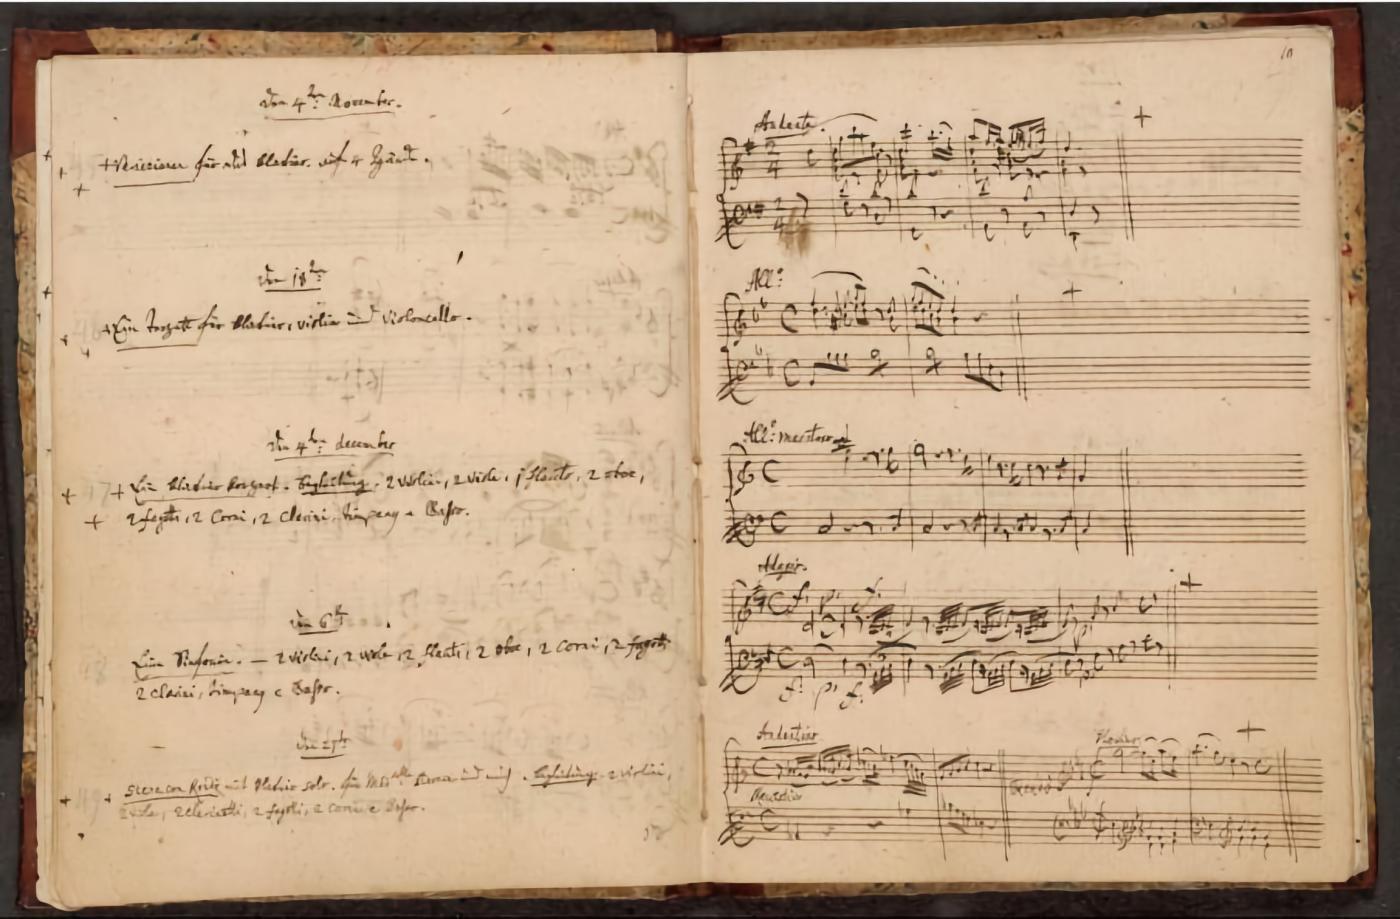 Den 4ten November.
Variazionen für das klavier. auf 4 Hände.
Den 18ten
Ein Terzett für klavier, violin und violoncello.
Den 4ten December
Ein klavier konzert. Begleitung. 2 violini, 2 viole, 1 flauto, 2 oboe,
2 fagotti, 2 Corni, 2 Clarini, timpany e Basso.
Den 6ten
Eine Sinfonie. — 2 violini, 2 viole, 2 flauti, 2 oboe, 2 Corni, 2 fagotti
2 clarini, timpany e Basso.
Den 27ten
Scena con Rondò mit klavier solo. für Mad:selle Storace und mich. Begleitung. 2 violini,
2 viole, 2 clarinetti, 2 fagotti, 2 Corni e Basso.
10
Andante.
All:o
All:o maestoso
Adagio.
f. p. f.
f. p. f.
Andantino
Recitativo
Rondò